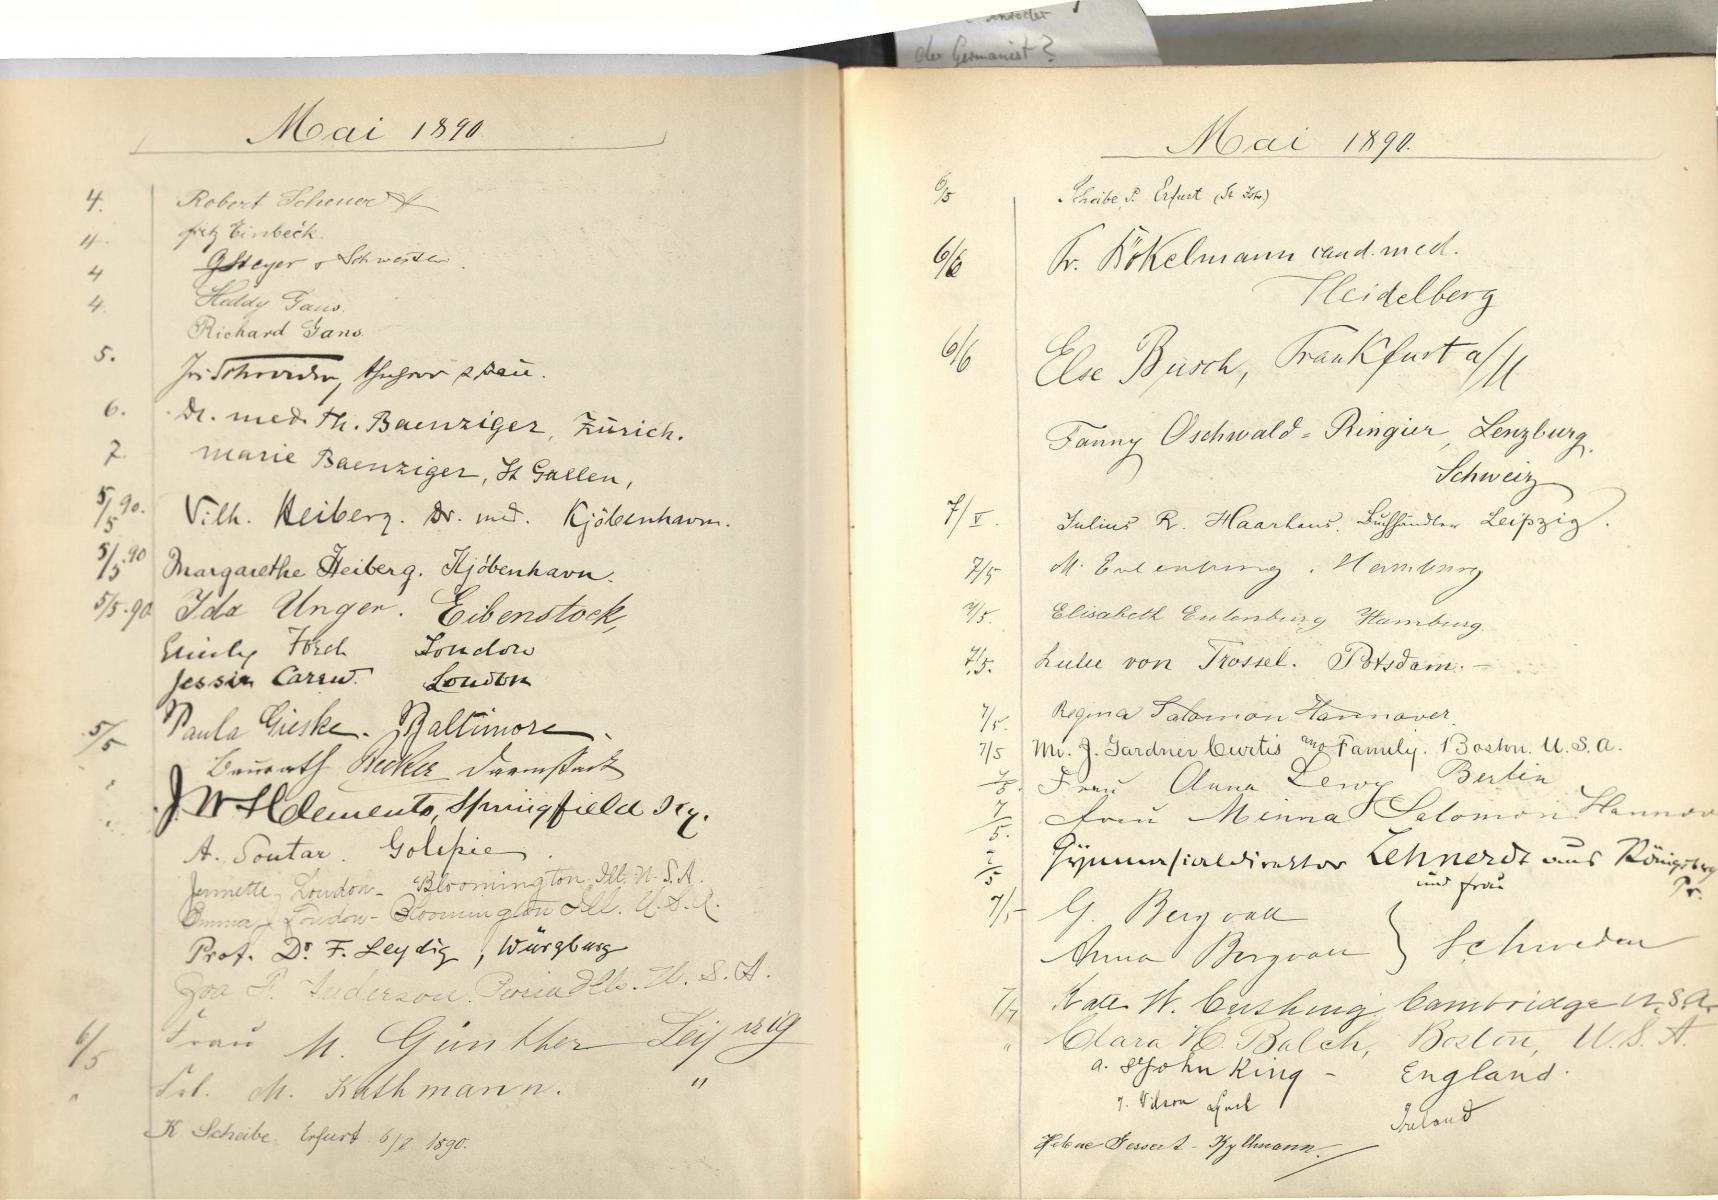 Mai 1890
4. Robert Scheuer
4. Fritz Einbeck.
4 G Steyer u Schwester.
4. Heddy Gans.
Richard Gans.
5.
6. Dr. med. Th. Baenziger, Zürich.
7. Marie Baenziger, St Gallen,
5/5 90. Vilh. Heiberg. Dr. med. Kjöbenhavn.
5/5 90 Margarethe Heiberg. Kjöbenhavn.
5/5. 90 Ida Unger. Eibenstock,
Emily Ford London
Jessie Carew. London
5/5 Paula Gieske. Baltimore.
Baurath Becker Darmstadt
J W H Clements, Springfield Ky.
A. Soutar. Golspie.
Jennette London - Bloomington Ill. U.S.A.
Emma J London - Bloomington Ill. U.S.A.
Prof. Dr. F. Leydig, Würzburg
P. Anderson. Peoria Ills. U.S.A.
6/5 Frau M. Günther Leipzig
" Frl. M. Kathmann. "
K Scheibe Erfurt 6/5 1890.
der Germanist?
Mai 1890.
6/5 Scheibe, P. Erfurt
6/6 Fr. Bökelmann cand. med.
Heidelberg
6/6 Else Busch, Frankfurt a/M
Fanny Oschwald-Ringier, Lenzburg.
Schweiz
7/V. Julius R. Haarhaus. Buchhändler Leipzig.
7/5 M. Eulenburg. Hamburg
7/5. Elisabeth Eulenburg Hamburg.
7/5. von Trossel. Potsdam. -
7/5. Regina Salomon Hannover.
7/5 Mr. J. Gardner Curtis and Family. Boston. U.S.A.
7/5. Frau Anna Lewy Berlin
7/5. Frau Minna Salomon Hannov
7/5 Gymnasialdirektor Lehnerdt aus Königsberg
und Frau Pr.
7/5 G. Bergvall
Anna Bergvall } Schweden
7/7 Kate W. Cushing Cambridge U.S.A.
" Clara H. Balch, Boston, U.S.A.
A. St John King - England.
J. Wilson Ireland
Helene Kyllmann.